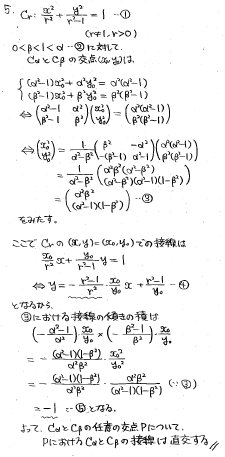 5.
Cr: x²/r² + y²/(r²-1) = 1 …①
(r≠1, r>0)
0<β<1<α …②に対して
CαとCβの交点(x₀,y₀)は
{ (α²-1)x₀²+α²y₀² = α²(α²-1)
(β²-1)x₀²+β²y₀² = β²(β²-1)
⇔ (α²-1 α² / β²-1 β²)(x₀² / y₀²) = (α²(α²-1) / β²(β²-1))
⇔ (x₀² / y₀²) = 1/(α²-β²) (β² -α² / -(β²-1) α²-1)(α²(α²-1) / β²(β²-1))
= 1/(α²-β²) (α²β²(α²-β²) / (α²-β²)(α²-1)(1-β²))
= (α²β² / (α²-1)(1-β²)) …③
をみたす。
ここで Crの(x,y)=(x₀,y₀)での接線は
x₀/r² x + y₀/(r²-1) y = 1
⇔ y = - (r²-1)/r² · x₀/y₀ x + (r²-1)/y₀ …④
となるから、
③における接線の傾きの積は
(-(α²-1)/α²) x₀/y₀ · (-(β²-1)/β²) · x₀/y₀
= - (α²-1)(1-β²)/α²β² · x₀²/y₀²
= - (α²-1)(1-β²)/α²β² · α²β²/(α²-1)(1-β²) (∵③)
= -1 …⑤となる。
よって、CαとCβの任意の交点Pについて、
PにおけるCαとCβの接線は直交する //